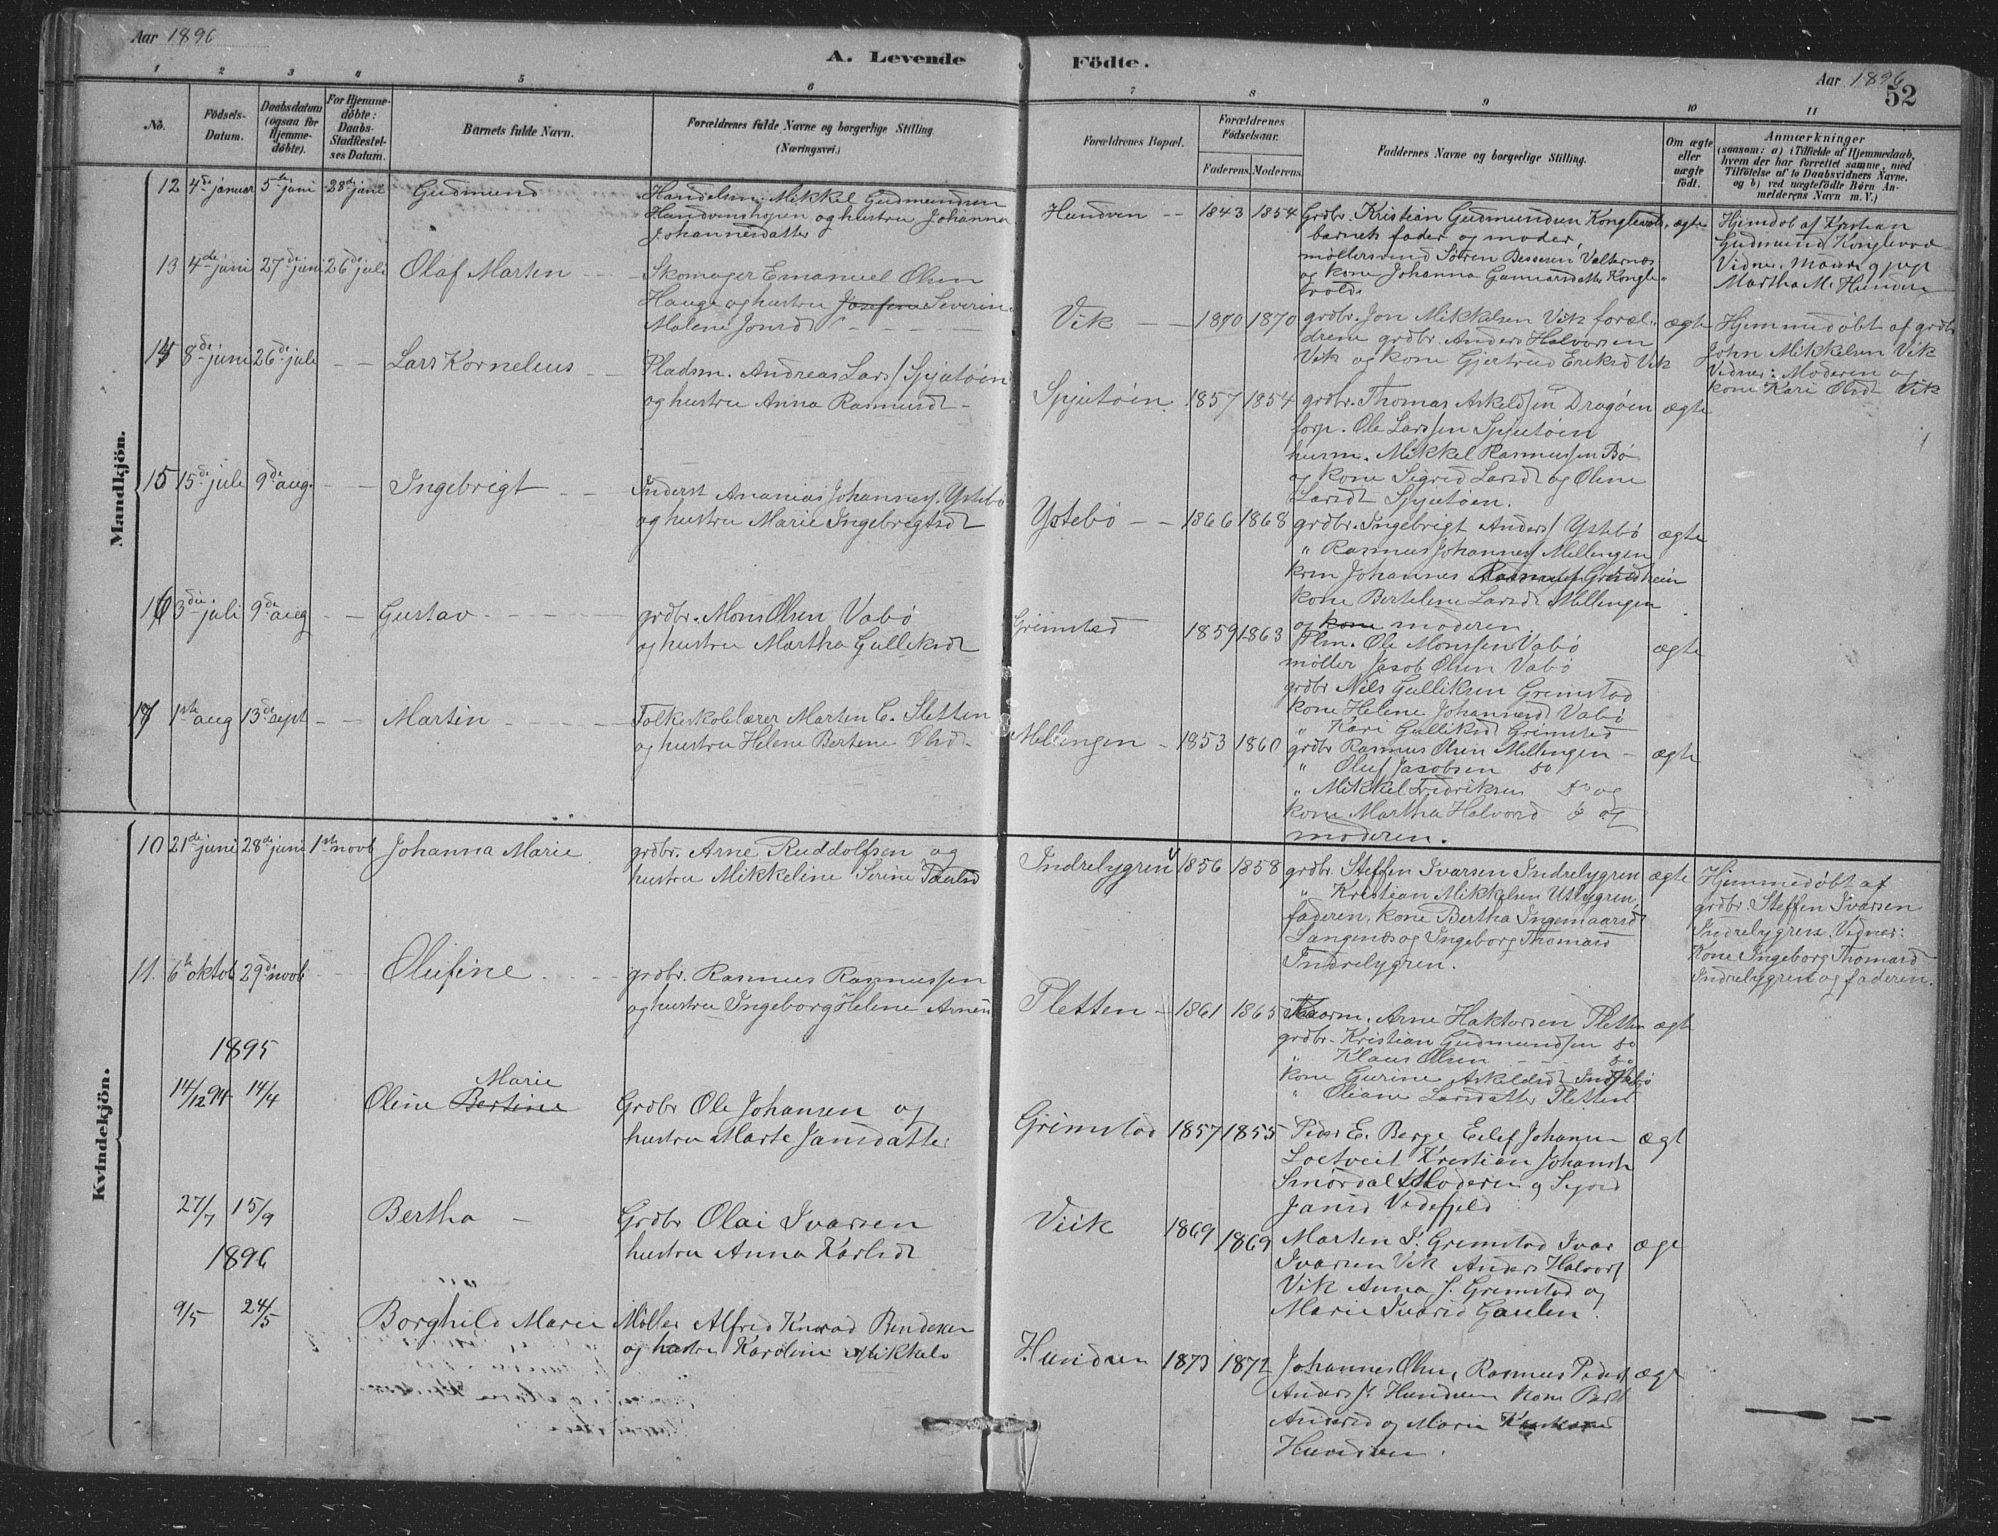 Aar 1896
A. Levende Födte.
Aar 1896
52
1 2 3 4 5 6 7 8 9 10 11
No.
Födsels-Datum.
Daabsdatum (ogsaa for Hjemme-döbte).
For Hjemme-döbte: Daabs-Stadfæstel-ses Datum.
Barnets fulde Navn.
Forældrenes fulde Navne og borgerlige Stilling
(Næringsvei.)
Forældrenes Bopæl.
Forældrenes Födselsaar.
Faderens. Moderens.
Faddernes Navne og borgerlige Stilling.
Om ægte eller uægte födt.
Anmærkninger
(saasom: a) i Tilfælde af Hjemmedaab, hvem der har forrettet samme, med Tilföielse af to Daabsvidners Navne, og b) ved uægtefödte Börn An-melderens Navn m. V.)
Mandkjön.
12 4de januar 5te juni 28de juni Gudmund
Handelsm. Mikkel Gudmundsen
Hundvenshopen og hustru Johanna
Johannesdatter
Hundven 1843 1854
Grdbr. Kristian Gudmundsen Konglevold, ægte
barnets fader og moder,
møllersvend Sören Bessesen Valternæs
og kone Johanna Gunnarsdatter Kongle-
vold.
Hjemdøb af Kristian
Gudmund Konglevold
Vidner
Martha M. Hunven
13 4de juni 27de juni 26de juli Olaf Marten
Skomager Emanuel Olsen
Hauge og hustru Josefine Severine
Malene Jonsdt
Vik 1870 1870
grdbr. Jon Mikkelsen Vik foræl- ægte
drene grdbr Anders Halvorsen
Vik og kone Gjertrud Eriksdt Vik
Hjemmedøbt af grdbr
John Mikkelsen Vik
Vidner: Moderen og
kone Kari Olsdt Vik
14 8de juni 26de juli Lars Kornelius
Pladsm. Andreas Lars/ Spjutøien
og hustru Anna Rasmusdt
Spjutøien 1857 1854
grdbr. Thomas Askelds/en Dragøen ægte
forp. Ole Lars/en Spjutøien
husm. Mikkel Rasmus/en Bø
og kone Sigrid Larsdt og Oline
Larsdt Spjutøien.
15 15de juli 9de aug. Ingebrigt
Inderst Ananias Johannes/. Ystebø
og hustru Marie Ingebrigtsdt
Ystebø 1866 1868
grdbr. Ingebrigt Anders/ Ystebø ægte
" Rasmus Johannes/ Mellingen
Johannes
kone Berteline Larsdt Mellingen
og kone moderen.
16 3die juli 9de aug Gustav
grdbr. Mons Olsen Vabø
og hustru Martha Gulliksdt
Grimstad 1859 1863
Flm. Ole Mons/en Vabø ægte
møller Jacob Olsen Vabø
grdbr Nils Gulliksen Grimstad
kone Helene Johannesdt Vabø
" Kari Gulliksdt Grimstad
17 1ste aug 13de sept Martin
Folkeskolelærer Marten C. Sletten
og hustru Helene Bertine Olsd.
Mellingen 1853 1860
grdbr Rasmus Olsen Mellingen ægte
" Oluf Jacobsen do
" Mikkel Fredriksen do og
kone Martha Halvorsd do og
moderen.
Kvindekjön.
10 21de juni 28de juni 1ste novb Johanna Marie
grdbr. Arne Ruddolfsen og
hustru Mikkeline Serine Paulsd
Indrelygren 1856 1858
grdbr. Steffen Ivarsen Indrelygren ægte
" Kristian Mikkelsen Utlygren,
faderen, kone Bertha Ingemaarsd
Langenæs og Ingeborg Thomasd
Indrelygren.
Hjemmedøbt af
grdbr. Steffen Ivarsen
Indrelygren. Vidner:
Kone Ingeborg Thomasd
Indrelygren og faderen.
11. 6te oktob 29de novb Olufine
grdbr. Rasmus Rasmus/en
og hustru Ingeborg Helene Arnesd
Sletten 1861 1865
Arne Haktorsen Sletten ægte
grdbr. Kristian Gudmunds/en do
" Klaus Olsen do
kone Gurine Askeldsd Indrebø
" Oliane Larsdatter Sletten
1895
14/12 94 14/4 Oline Bertine Marie
Grdbr Ole Johansen og
hustru Marte Jansdatter
Grimstad 1857 1855
Peder E. Berge Eilef Johansen ægt
Loetveit Kristian Johansen
Smørdal Moderen og Sigrid
Jansd Vedefjeld
27/7 15/9 Bertha
Grdbr Olai Ivarsen
hustru Anna Karlsdt
Viik 1869 1869
Marten J. Grimstad Ivar ægt
Ivarsen Vik Anders Halvors/
Vik Anna J. Grimstad og
Marie Ivarsd Gaulen.
1896
9/5 24/5 Borghild Marie
Møller Alfred Knrad Bendexen
og hustru Karoline Mikkels
Hundven 1873 1872
Johannes Olsen, Rasmus Peders/ ægt
Anders J. Hundven kone Berth
Andersd og Marie
Hundven.